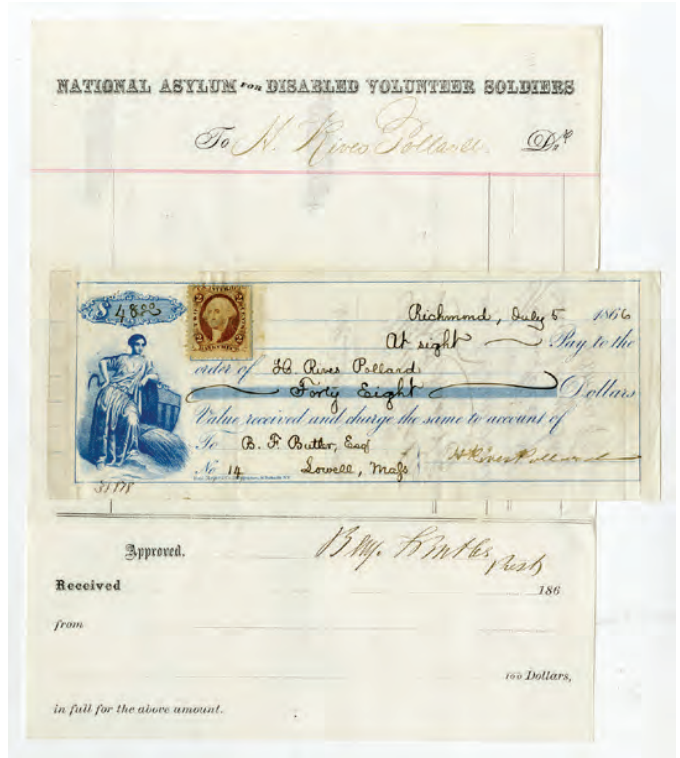 NATIONAL ASYLUM FOR DISABLED VOLUNTEER SOLDIERS
To H. Rives Pollard Dr
$ 48
Richmond, July 5 1866
At sight Pay to the
order of H. Rives Pollard
Forty Eight Dollars
Value received and charge the same to account of
To B. F. Butler, Esq
No 14 Lowell, Mass
H Rives Pollard
Approved.
Benj. F Butler
Prest
Received 186
from
100 Dollars,
in full for the above amount.